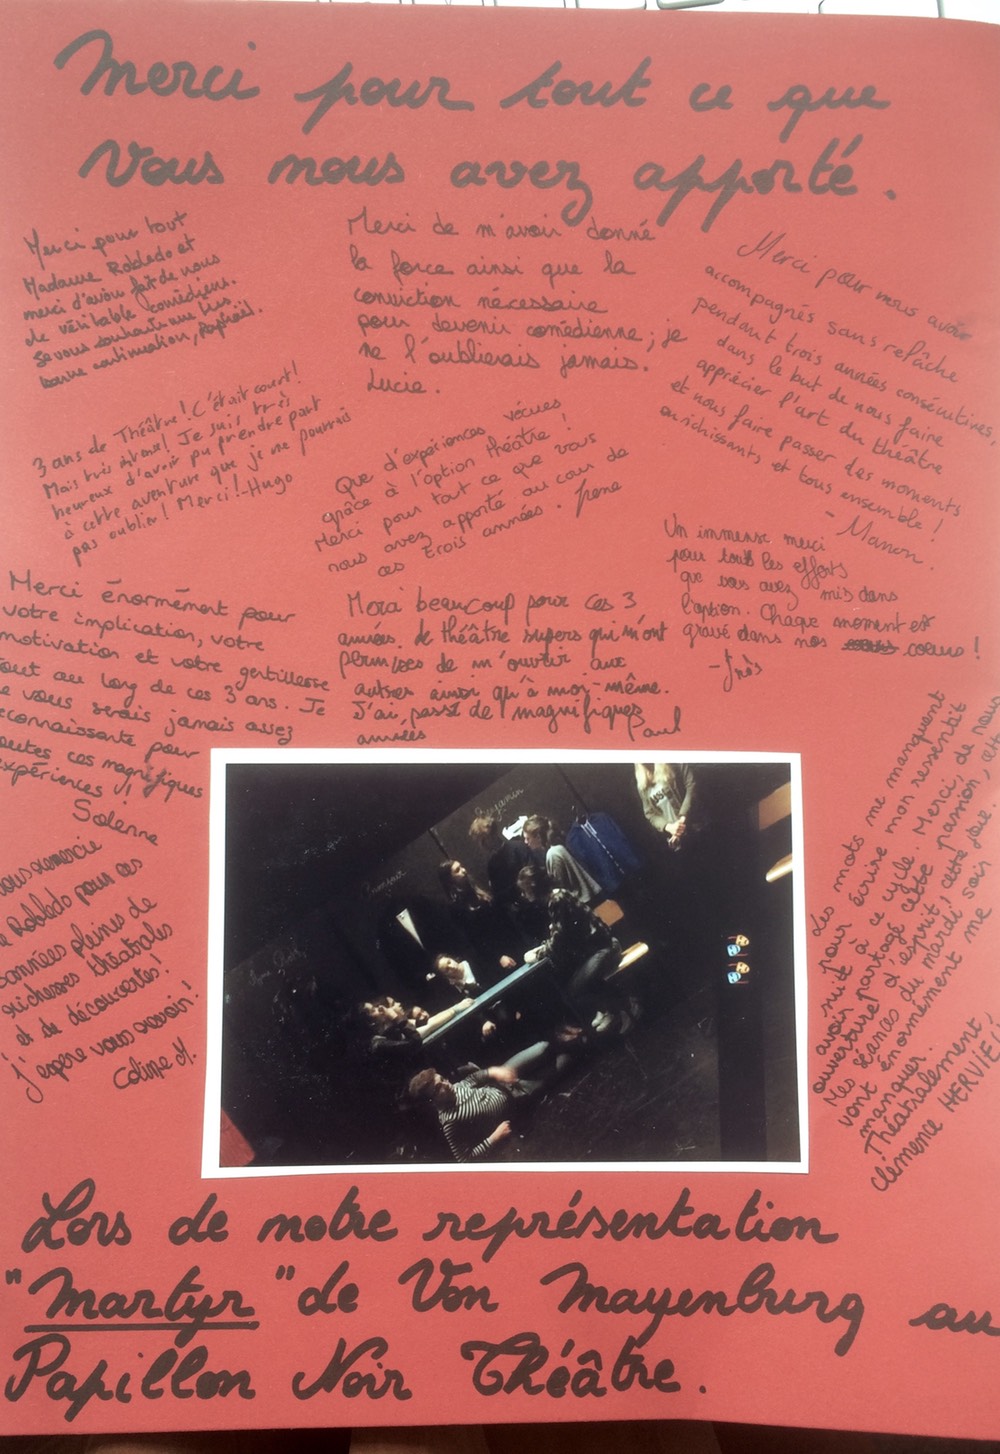 Merci pour tout ce que
vous nous avez apporté.
Merci pour tout
Madame Robledo et
merci d'avoir fait de nous
de véritable comédiens.
Je vous souhaite une très
bonne continuation, Raphaël.
Merci de m'avoir donné
la force ainsi que la
conviction nécessaire
pour devenir comédienne ; je
ne l'oublierais jamais.
Lucie.
Merci pour nous avoir
accompagnés sans relâche
pendant trois années consécutives,
dans le but de nous faire
apprécier l'art du théâtre
et nous faire passer des moments
enrichissants et tous ensemble !
- Manon.
3 ans de Théâtre ! C'était court !
Mais très intense ! Je suis très
heureux d'avoir pu prendre part
à cette aventure que je ne pourrais
pas oublier ! Merci ! - Hugo
Que d'expériences vécues
grâce à l'option théâtre !
Merci pour tout ce que vous
nous avez apporté au cours de
ces trois années. Irene
Un immense merci
pour touts les efforts
que vous avez mis dans
l'option. Chaque moment est
gravé dans nos coeurs !
- Inès
Merci énormément pour
votre implication, votre
motivation et votre gentillesse
tout au long de ces 3 ans. Je
ne vous serais jamais assez
reconnaissante pour
toutes ces magnifiques
expériences !
Solenne
Merci beaucoup pour ces 3
années de théâtre supers qui m'ont
permises de m'ouvrir aux
autres ainsi qu'à moi-même.
J'ai passé de magnifiques
années Paul
vous remercie
Robledo pour ces
années pleines de
richesses théâtrales
et de découvertes !
J'espère vous revoir !
Coline M.
Les mots me manquent
pour écrire mon ressentit
suite à ce cycle. Merci, de nous
avoir partagé cette passion, cette
ouverture d'esprit, cette joie.
Mes séances du mardi soir
vont énormément me
manquer.
Théâtralement,
Clémence HERVIEU
Benjamin
Bonjour
Lors de notre représentation
"Martyr" de Von Mayenburg au
Papillon Noir Théâtre.